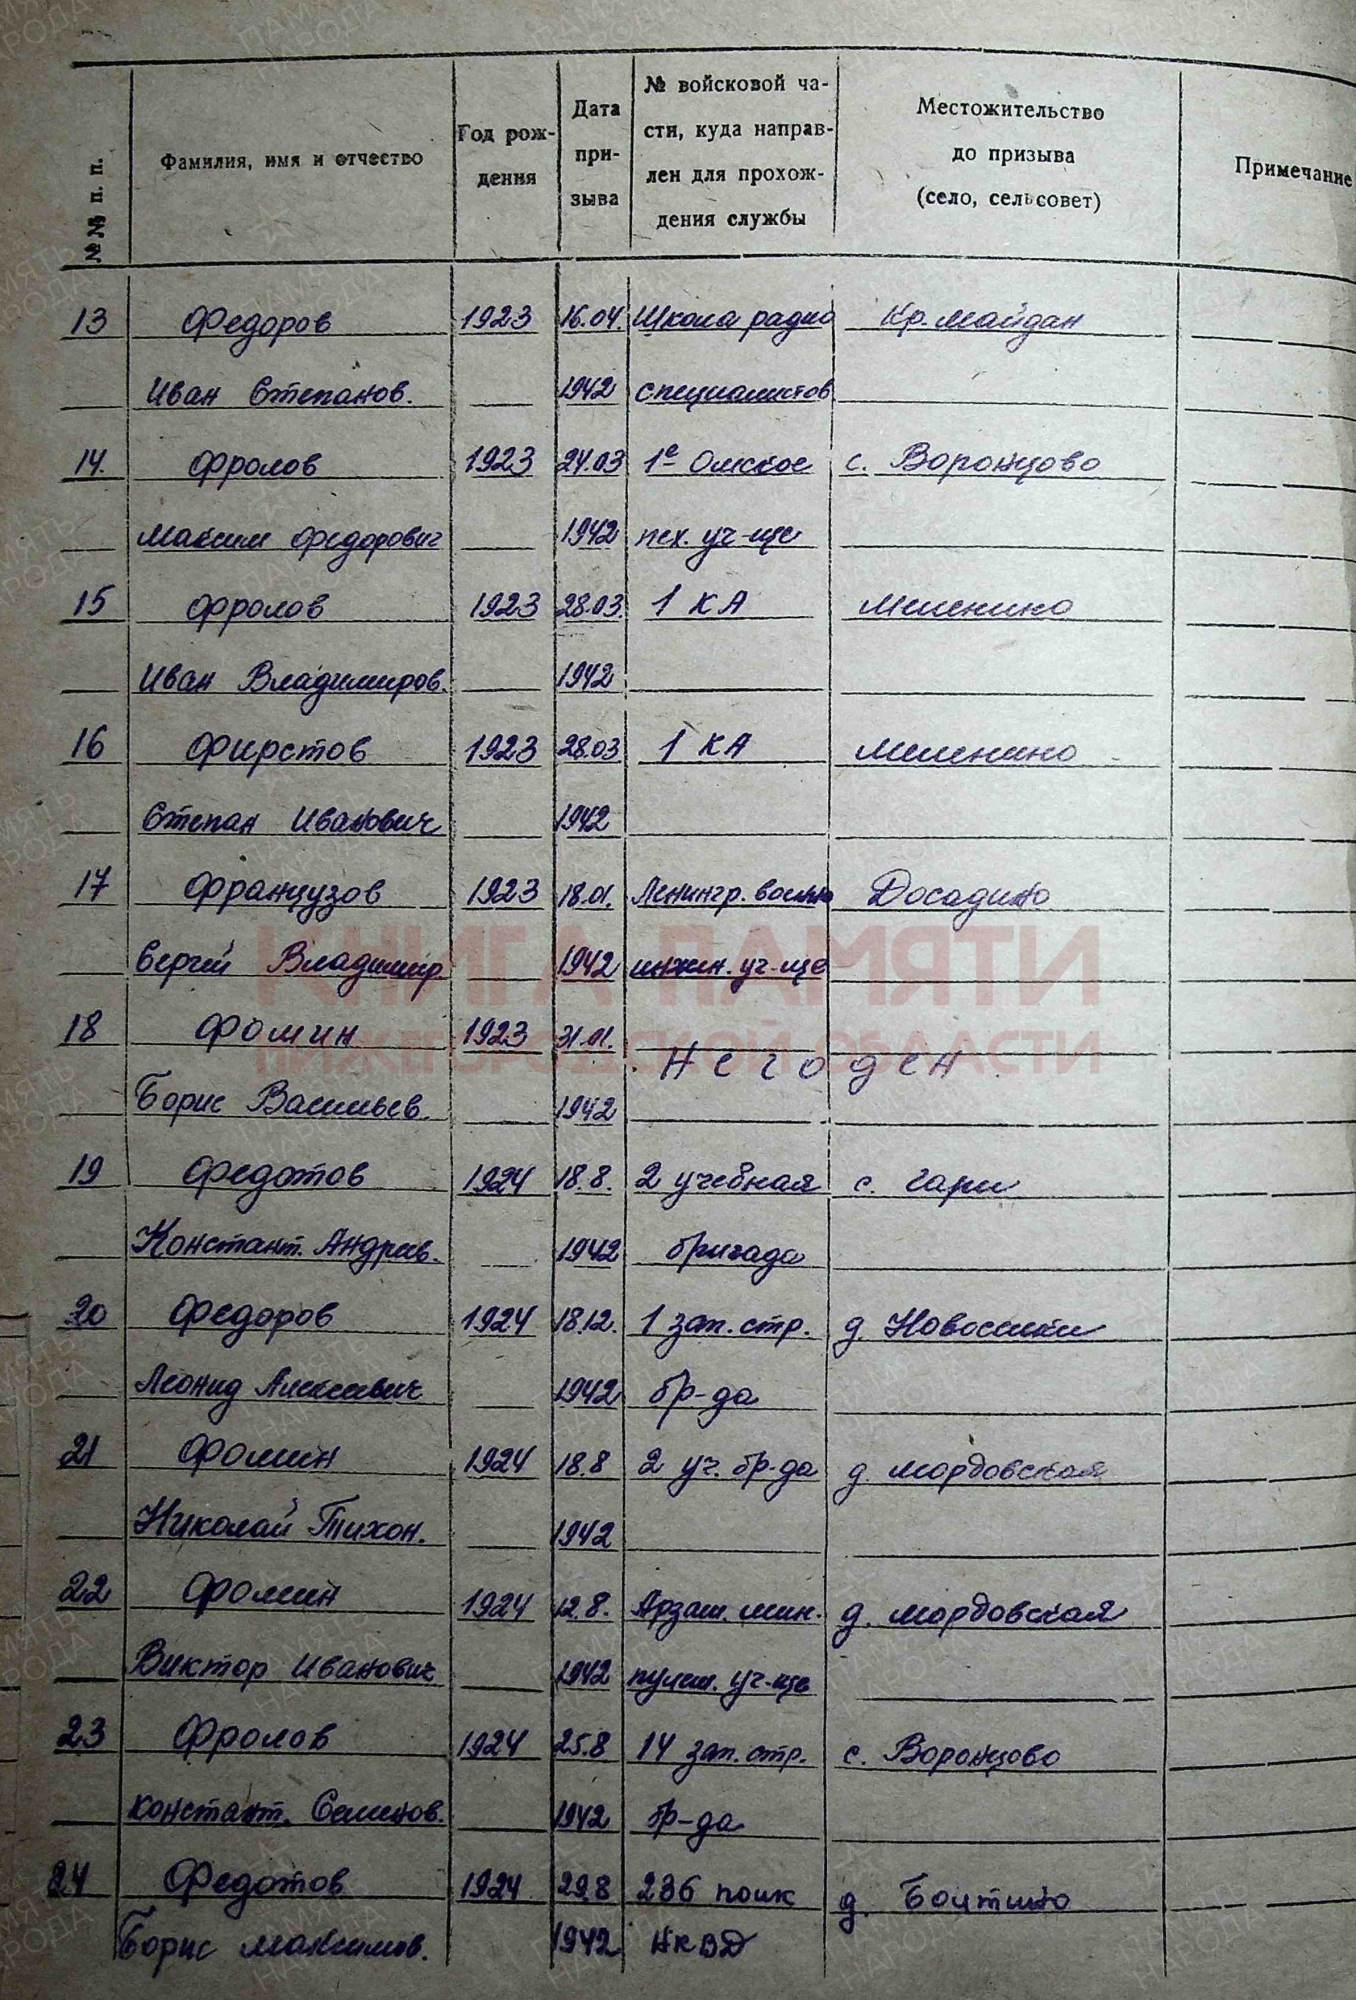 №№ п. п.
Фамилия, имя и отчество
Год рож-
дения
Дата
при-
зыва
№ войсковой ча-
сти, куда направ-
лен для прохож-
дения службы
Местожительство
до призыва
(село, сельсовет)
Примечание
13 Федоров 1923 16.04. Школа радио Кр. Майдан
Иван Степанов. 1942 специалистов
14. Фролов 1923 24.03 1е Омское с. Воронцово
Максим Федорович 1942 пех. уч-ще
15 Фролов 1923 28.03. 1 КА Меленино
Иван Владимиров. 1942
16 Фирстов 1923 28.03 1 КА Меленино
Степан Иванович 1942
17 Французов 1923 18.01. Ленингр. военно Досадино
Сергей Владимир. 1942 инжен. уч-ще
КНИГА ПАМЯТИ
18 Фомин 1923 31.01.
НИЖЕГОРОДСКОЙ ОБЛАСТИ
Негоден
Борис Васильев. 1942
19 Федотов 1924 18.8. 2 учебная с. Гари
Констант. Андреев. 1942 бригада
20 Федоров 1924 18.12. 1 зап. стр. д. Новоселки
Леонид Алексеевич 1942 бр-да
21 Фомин 1924 18.8 2 уч. бр-да д. Мордовская
Николай Тихон. 1942
22 Фомин 1924 12.8. Арзам. мин. д. Мордовская
Виктор Иванович 1942 пулем. уч-ще
23 Фролов 1924 25.8 14 зап. стр. с. Воронцово
Констант. Семенов. 1942 бр-да
24 Федотов 1924 29.8 236 полк д.
Борис Максимов. 1942 НКВД